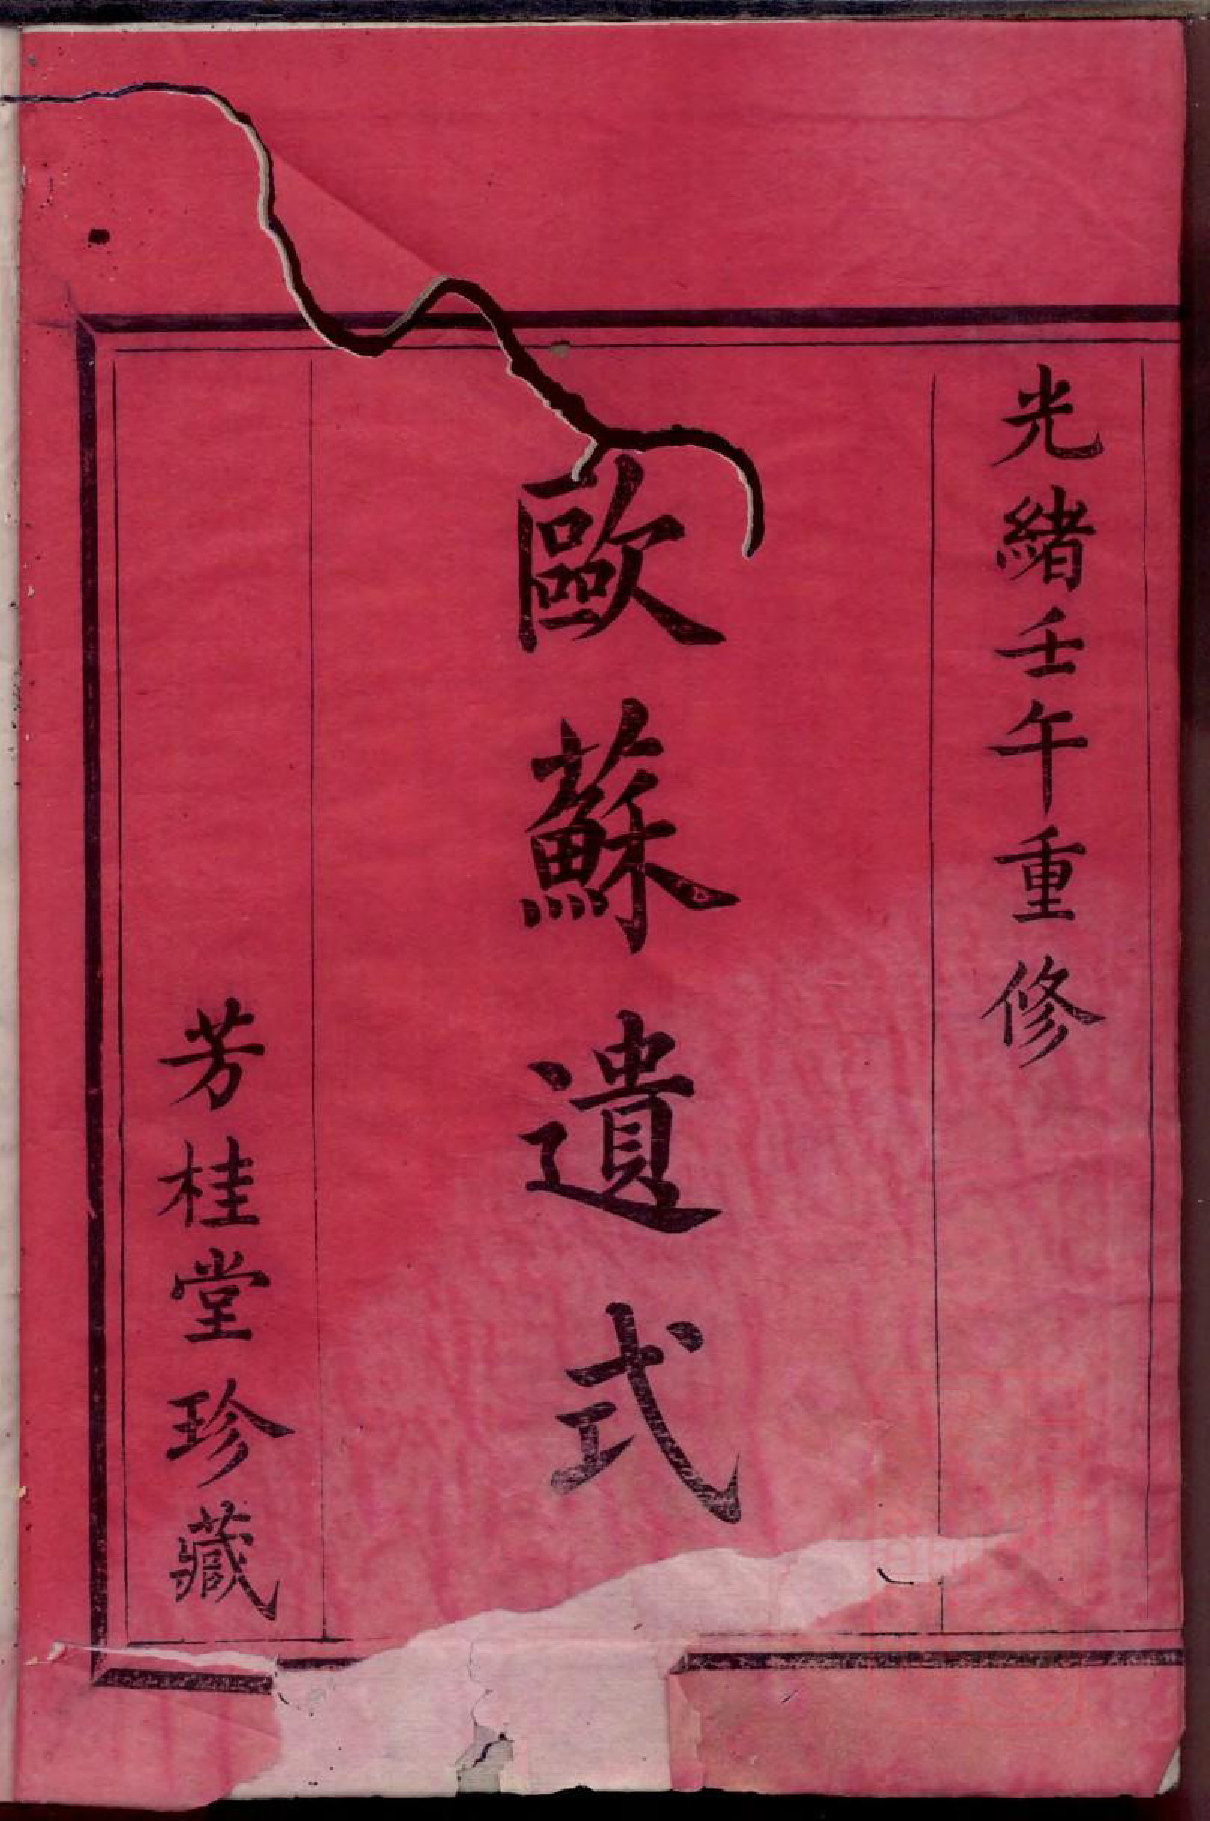 光緒壬午重修
歐蘇遺式
芳桂堂珍藏